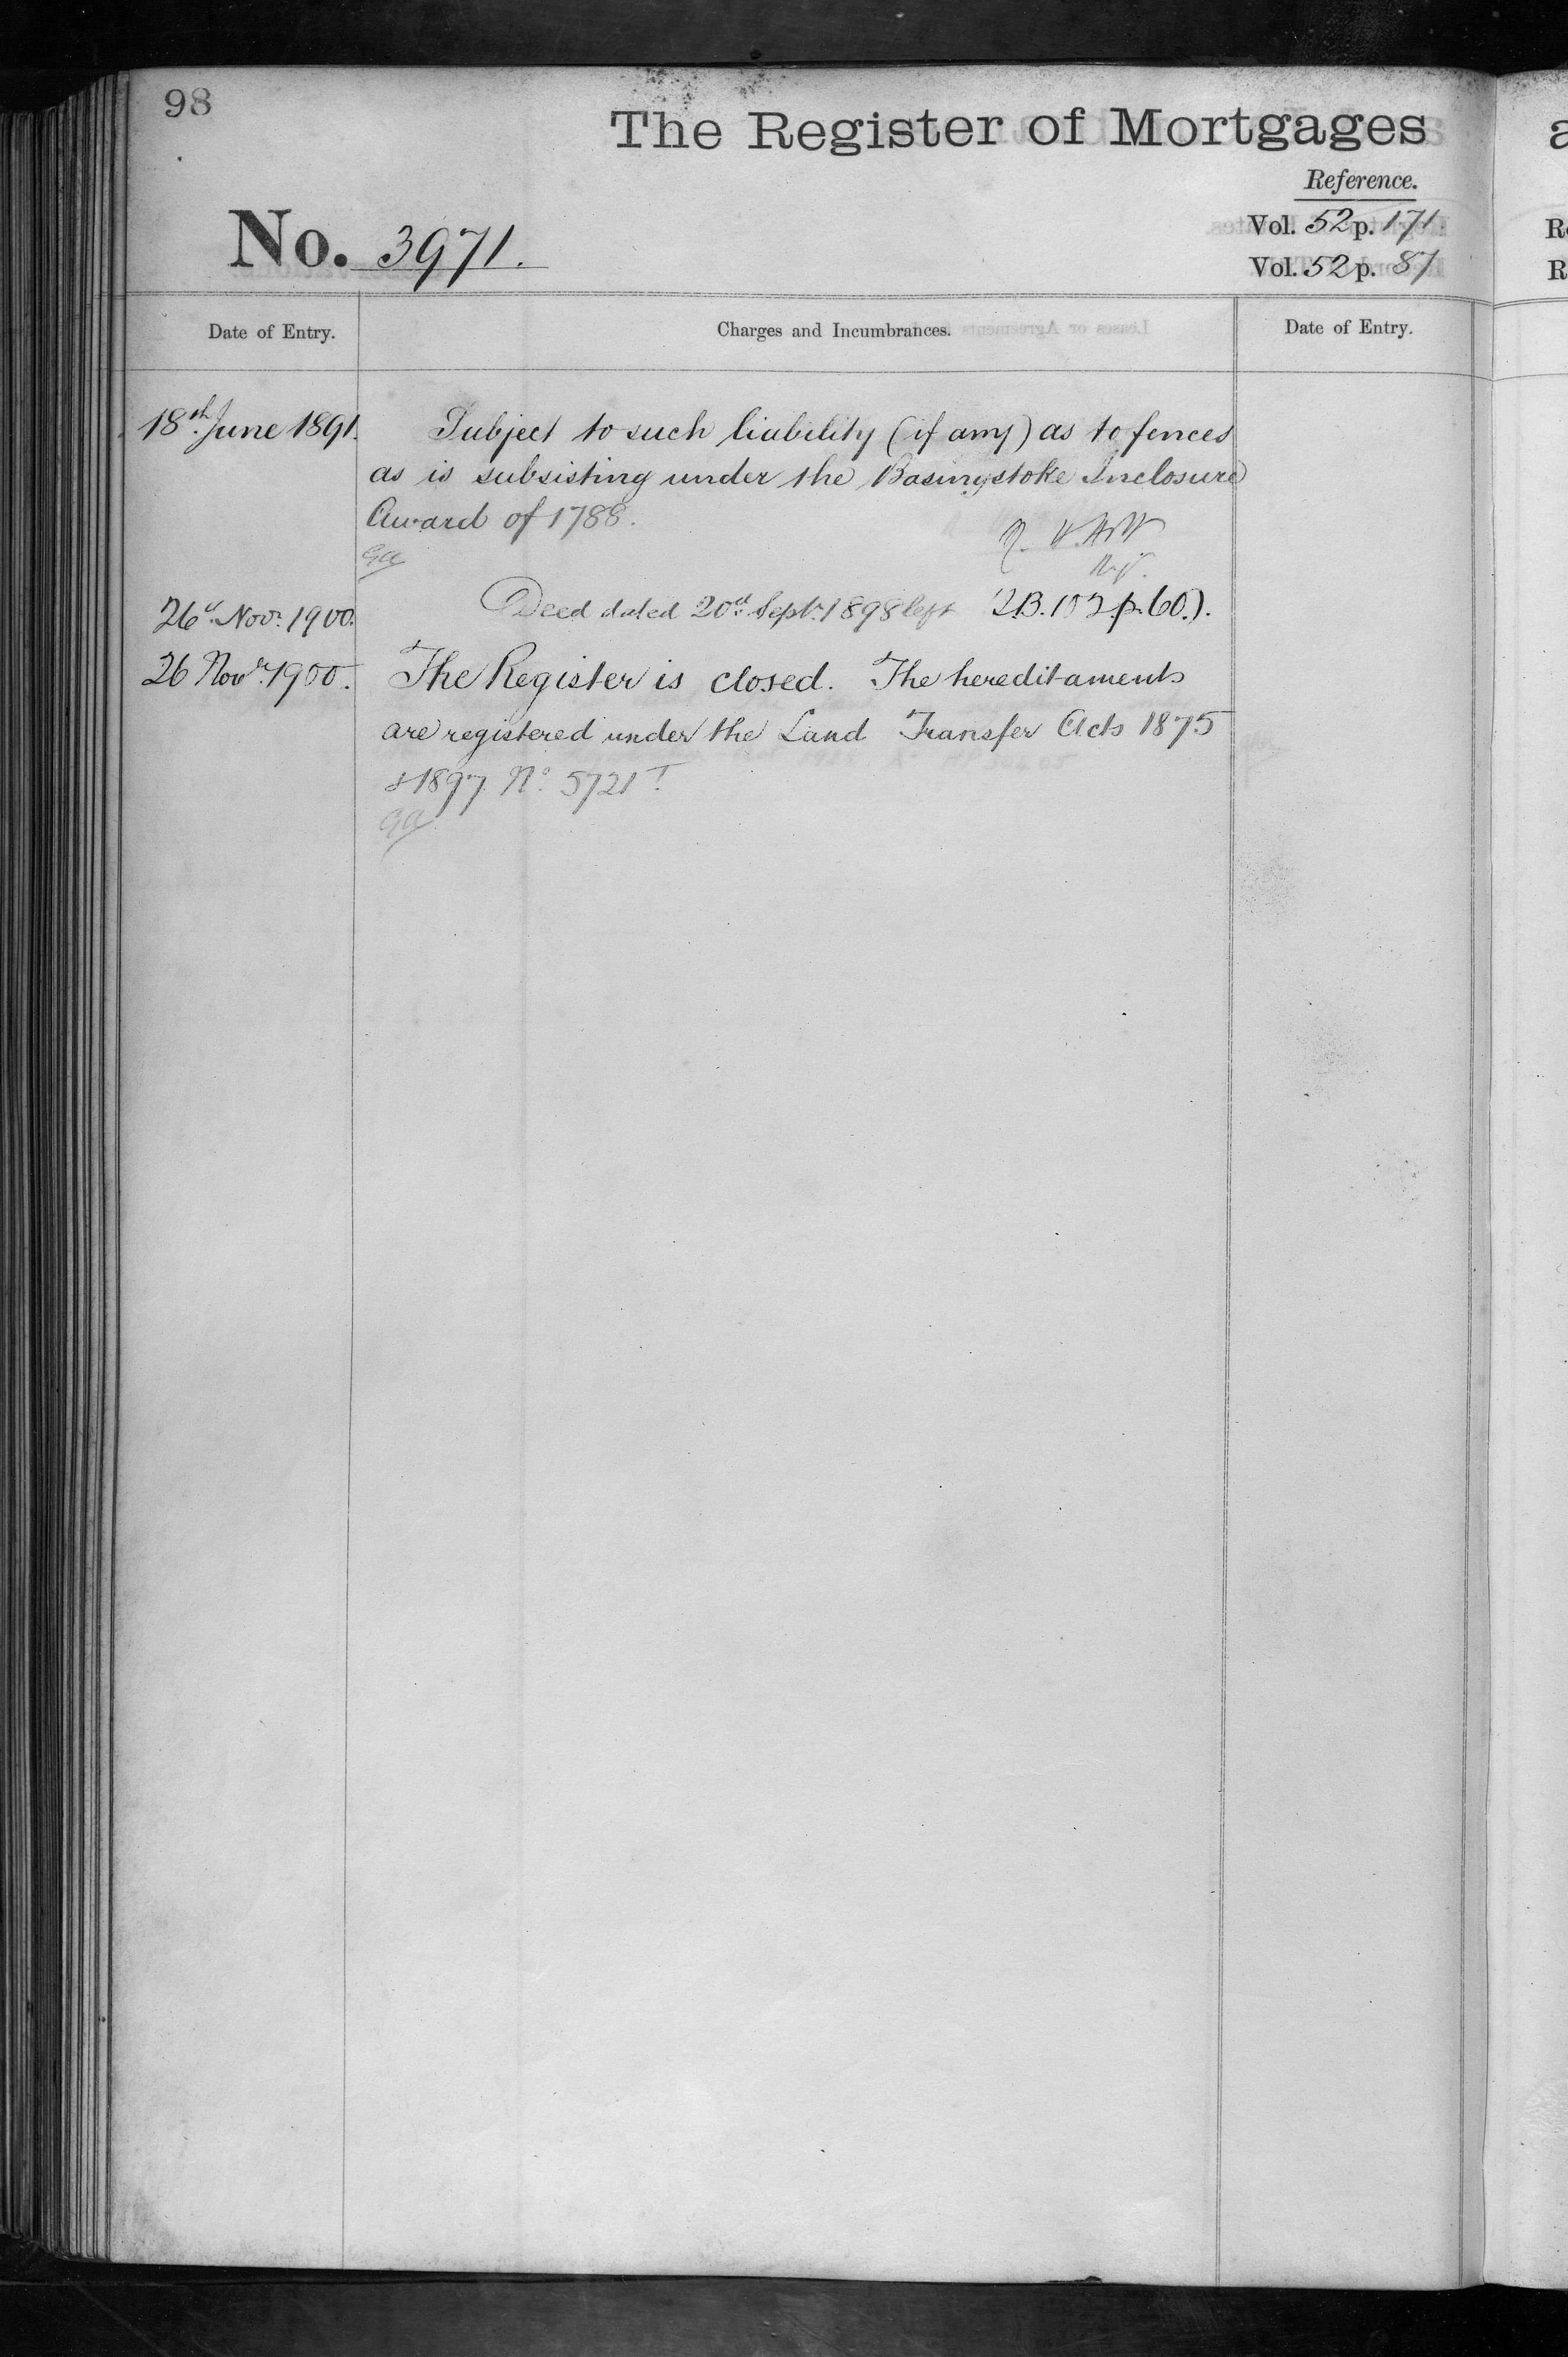 98
The Register of Mortgages
Reference.
Vol. 52 p. 171.
No. 3971.
Vol. 52 p. 87
Date of Entry.
Charges and Incumbrances.
Date of Entry.
18th June 1891.
Subject to such liability (if any) as to fences
as is subsisting under the Basingstoke Inclosure
Award of 1788.
26th Novr. 1900.
Deed dated 20th Septr. 1898 left
26 Novr. 1900.
The Register is closed. The hereditaments
are registered under the Land Transfer Acts 1875
& 1897. No. 5721